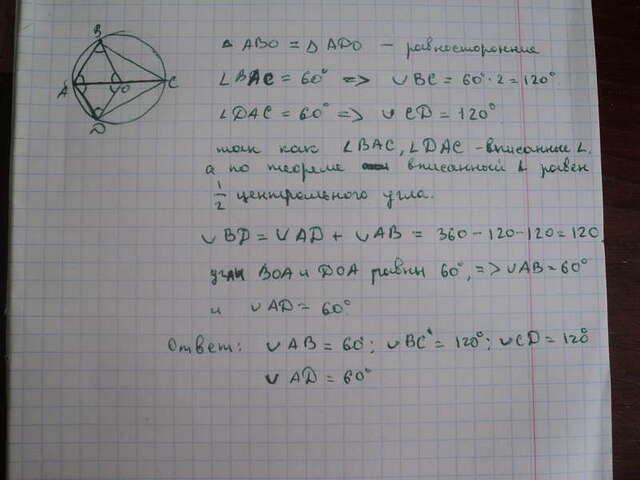 B
A
O
C
D
△ ABO = △ ADO – равносторонние
∠BAC = 60° => ◡BC = 60°·2 = 120°
∠DAC = 60° => ◡CD = 120°
так как ∠BAC, ∠DAC - вписанные ∠.
а по теореме вписанный ∠ равен
1/2 центрального угла.
◡BD = ◡AD + ◡AB = 360 - 120 - 120 = 120
углы BOA и DOA равны 60°, => ◡AB = 60°
и ◡AD = 60°
Ответ: ◡AB = 60°; ◡BC = 120°; ◡CD = 120°
◡AD = 60°